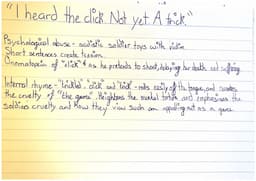 "I heard the click. Not yet. A trick."
Psychological abuse - sadistic soldier toys with victim
Short sentences create tension
Onomatopoeia of "click" as he pretends to shoot, delaying her death and suffering
Internal rhyme - "trickled", click" and "trick" - rolls easily off the tongue and
the cruelty of "the game". Heightens the mental torture and emphasises the
soldiers cruelty and how they view such an appalling act as a game.